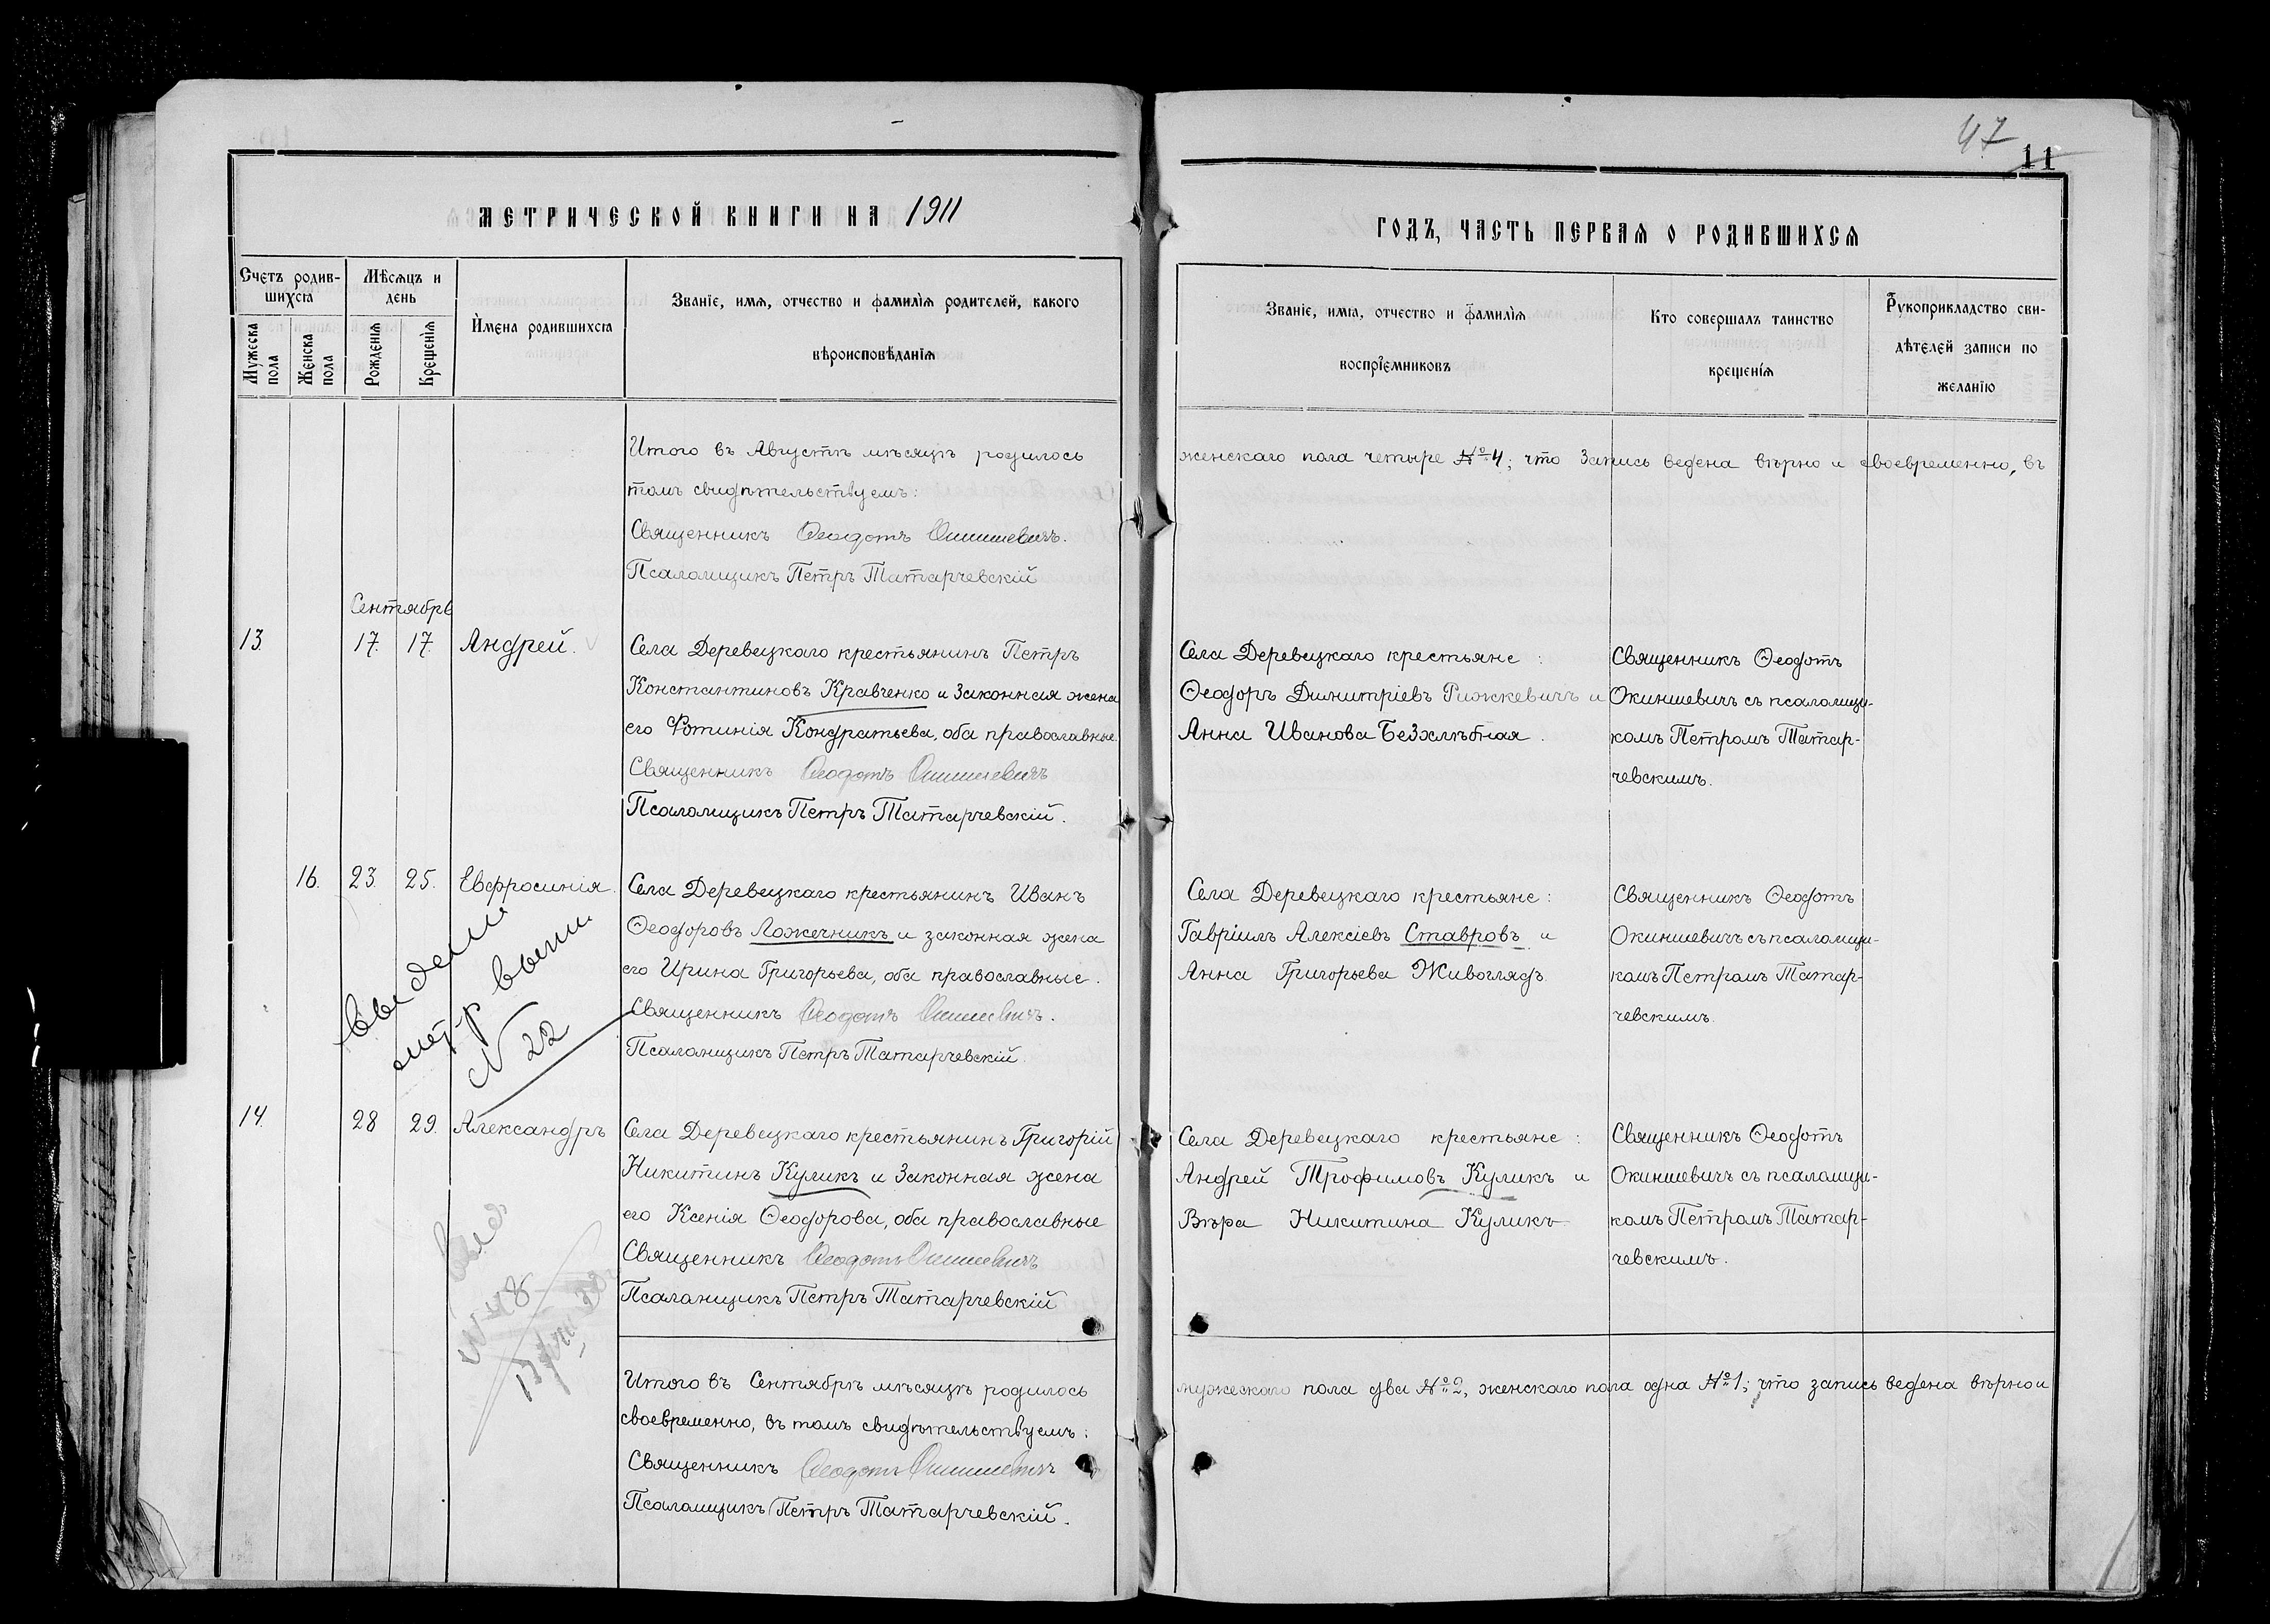 47
11
МЕТРИЧЕСКОЙ КНИГИ НА 1911
ГОДЪ, ЧАСТЬ ПЕРВАЯ О РОДИВШИХСЯ
Счетъ родив-
шихся
Мужеска
пола
Женска
пола
Мѣсяцъ и
день
Рожденія
Крещенія
Имена родившихся
Званіе, имя, отчество и фамилія родителей, какого
вѣроисповѣданія
Званіе, имя, отчество и фамилія
воспріемниковъ
Кто совершалъ таинство
крещенія
Рукоприкладство сви-
дѣтелей записи по
желанію
Итого въ Августѣ мѣсяцѣ родилось
женскаго пола четыре №4; что запись ведена вѣрно и своевременно, въ
томъ свидѣтельствуемъ:
Священникъ Ѳеодотъ Окиншевичъ.
Псаломщикъ Петръ Татарчевскій
Сентябрь
13. 17. 17. Андрей.
Села Деревецкаго крестьянинъ Петръ
Константиновъ Кравченко и законная жена
его Фотинія Кондратьева, оба православные.
Священникъ Ѳеодотъ Окиншевичъ
Псаломщикъ Петръ Татарчевскій.
Села Деревецкаго крестьяне:
Ѳеодоръ Димитріевъ Рижкевичъ и
Анна Иванова Безхлѣбная.
Священникъ Ѳеодотъ
Окиншевичъ съ псаломщи-
комъ Петромъ Татар-
чевскимъ.
16. 23. 25. Евфросинія.
Села Деревецкаго крестьянинъ Иванъ
Ѳеодоровъ Ложечникъ и законная жена
его Ирина Григорьева, оба православные.
Священникъ Ѳеодотъ Окиншевичъ.
Псаломщикъ Петръ Татарчевскій.
Села Деревецкаго крестьяне:
Гавріилъ Алексіевъ Ставровъ и
Анна Григорьева Живоглядъ.
Священникъ Ѳеодотъ
Окиншевичъ съ псаломщи-
комъ Петромъ Татар-
чевскимъ.
метр выпи
N 22
14. 28 29. Александръ
Села Деревецкаго крестьянинъ Григорій
Никитинъ Куликъ и законная жена
его Ксенія Ѳеодорова, оба православные
Священникъ Ѳеодотъ Окиншевичъ
Псаломщикъ Петръ Татарчевскій
Села Деревецкаго крестьяне:
Андрей Трофимовъ Куликъ и
Вѣра Никитина Куликъ
Священникъ Ѳеодотъ
Окиншевичъ съ псаломщи-
комъ Петромъ Татар-
чевскимъ.
Итого въ Сентябрѣ мѣсяцѣ родилось
мужескаго пола два №2, женскаго пола одна №1; что запись ведена вѣрно и
своевременно, въ томъ свидѣтельствуемъ:
Священникъ Ѳеодотъ Окиншевичъ
Псаломщикъ Петръ Татарчевскій.